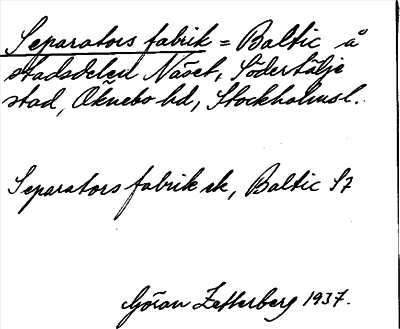 Separators fabrik = Baltic å
stadsdelen Näset, Södertälje
stad, Öknebo hd, Stockholmsl.
Separators fabrik ek, Baltic S7
Göran Zetterberg 1937.